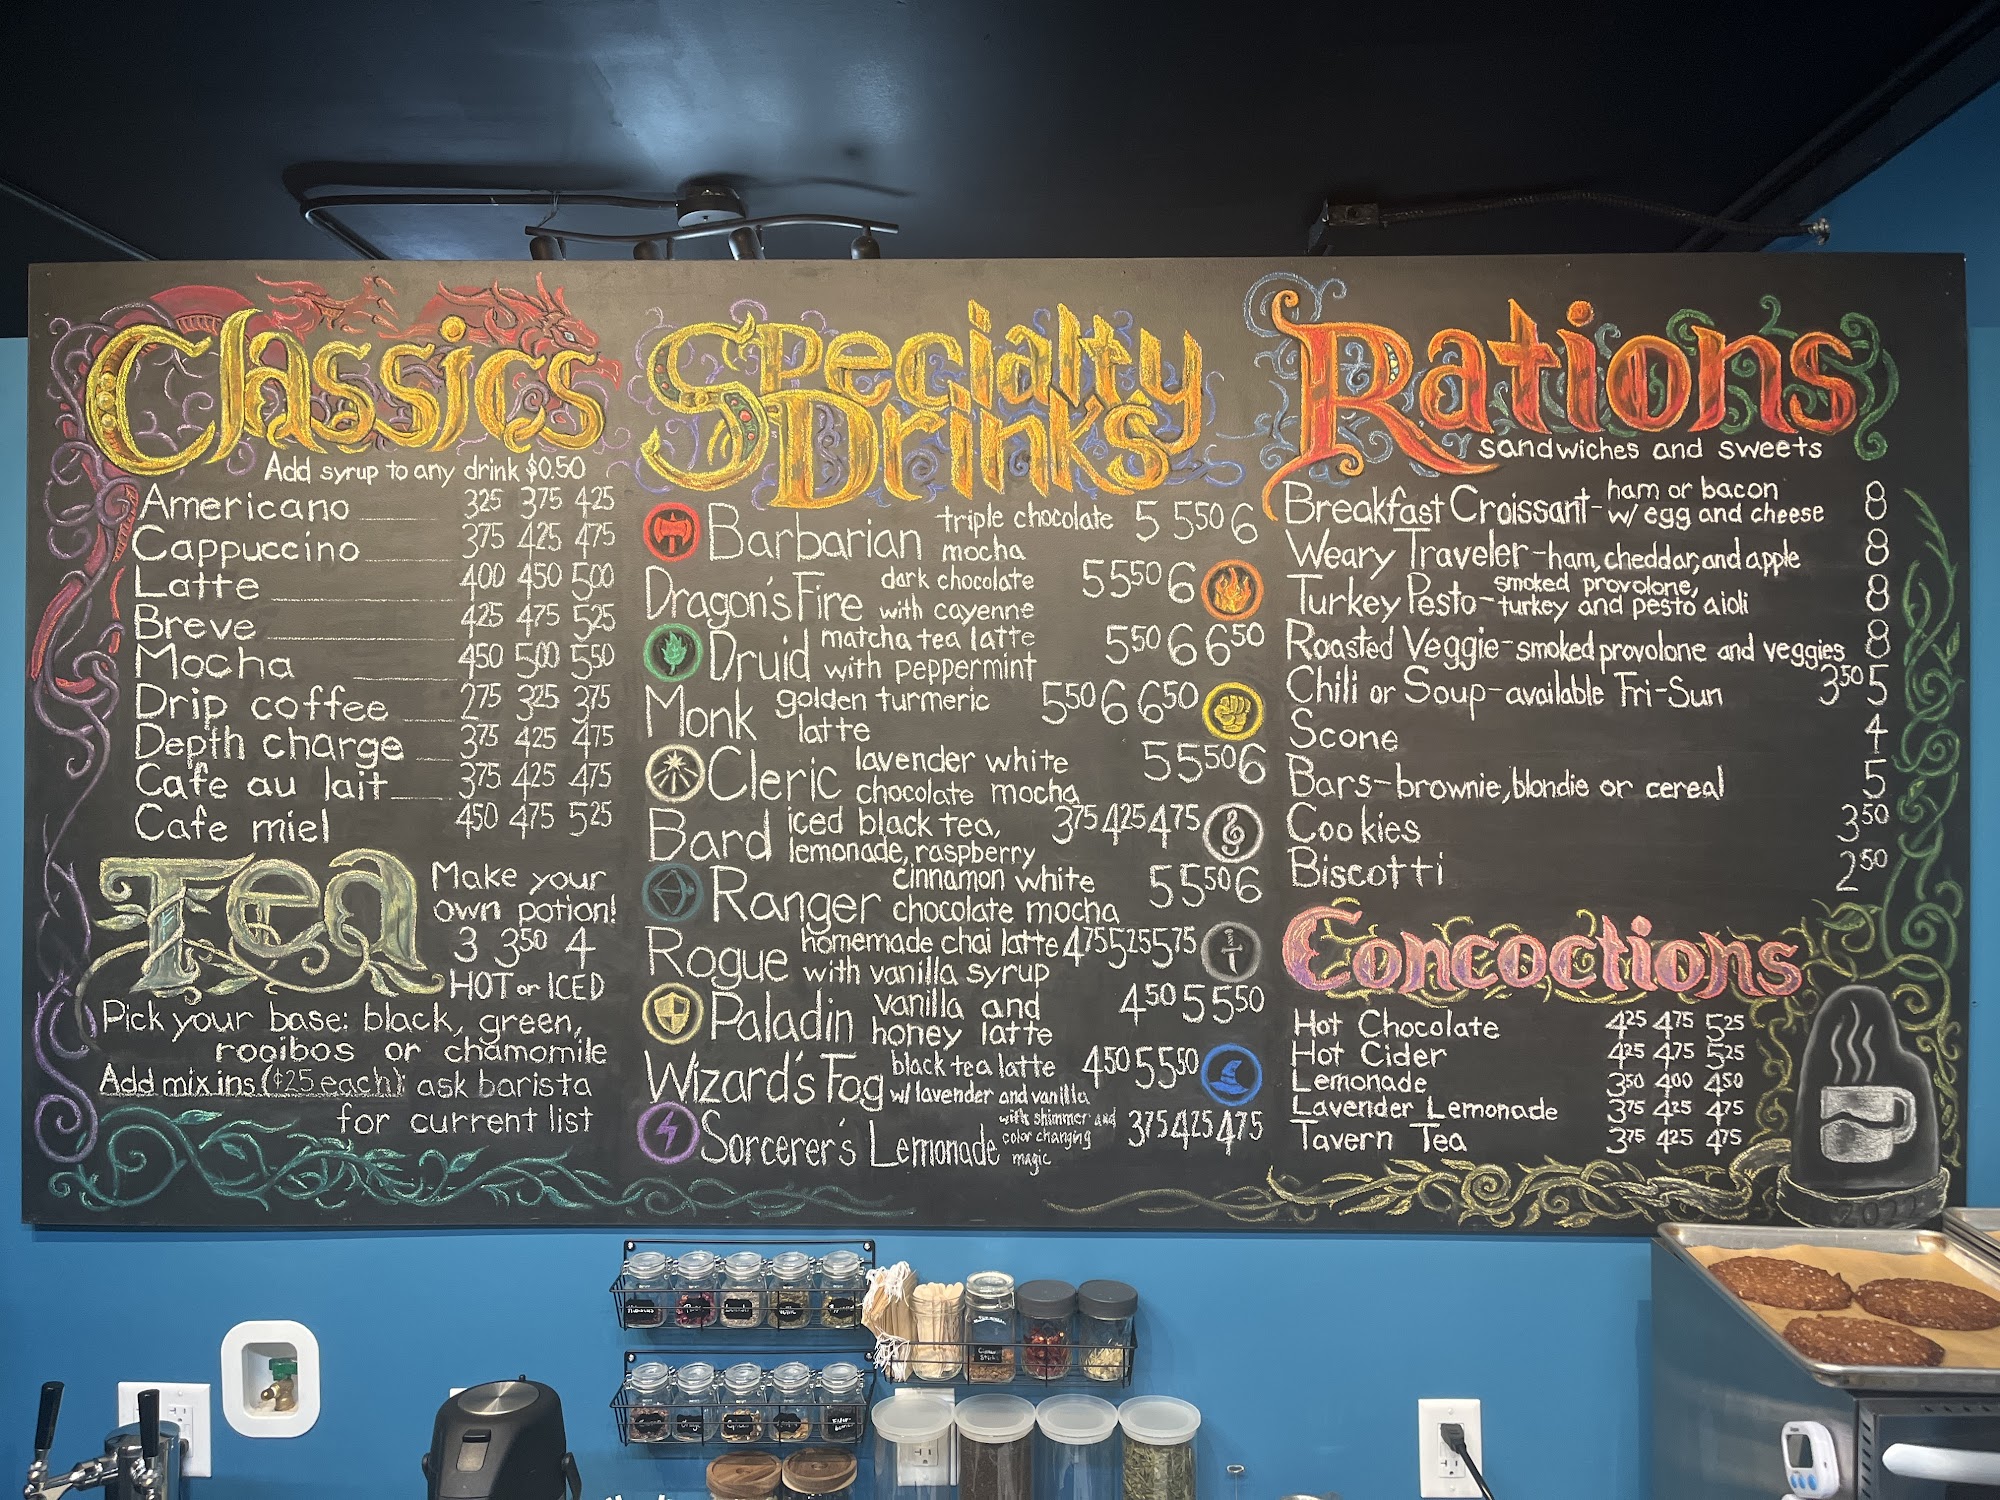 Classics
Add syrup to any drink $0.50
Americano 3.25 3.75 4.25
Cappuccino 3.75 4.25 4.75
Latte 4.00 4.50 5.00
Breve 4.25 4.75 5.25
Mocha 4.50 5.00 5.50
Drip coffee 2.75 3.25 3.75
Depth charge 3.75 4.25 4.75
Cafe au lait 3.75 4.25 4.75
Cafe miel 4.50 4.75 5.25
Tea
Make your
own potion!
3 3.50 4
HOT or ICED
Pick your base: black, green,
rooibos or chamomile
Add mix ins ($.25 each): ask barista
for current list
Specialty
Drinks
Barbarian triple chocolate 5 5.50 6
mocha
Dragon's Fire dark chocolate 5 5.50 6
with cayenne
Druid matcha tea latte 5.50 6 6.50
with peppermint
Monk golden turmeric 5.50 6 6.50
latte
Cleric lavender white 5 5.50 6
chocolate mocha
Bard iced black tea, 3.75 4.25 4.75
lemonade, raspberry
Ranger cinnamon white 5 5.50 6
chocolate mocha
Rogue homemade chai latte 4.75 5.25 5.75
with vanilla syrup
Paladin vanilla and 4.50 5 5.50
honey latte
Wizard's Fog black tea latte 4.50 5 5.50
w/ lavender and vanilla
Sorcerer's Lemonade with shimmer and 3.75 4.25 4.75
color changing
magic
Rations
sandwiches and sweets
Breakfast Croissant - ham or bacon 8
w/ egg and cheese
Weary Traveler - ham, cheddar, and apple 8
Turkey Pesto - smoked provolone, 8
turkey and pesto aioli
Roasted Veggie - smoked provolone and veggies 8
Chili or Soup - available Fri-Sun 3.50 5
Scone 4
Bars - brownie, blondie or cereal 5
Cookies 3.50
Biscotti 2.50
Concoctions
Hot Chocolate 4.25 4.75 5.25
Hot Cider 4.25 4.75 5.25
Lemonade 3.50 4.00 4.50
Lavender Lemonade 3.75 4.25 4.75
Tavern Tea 3.75 4.25 4.75